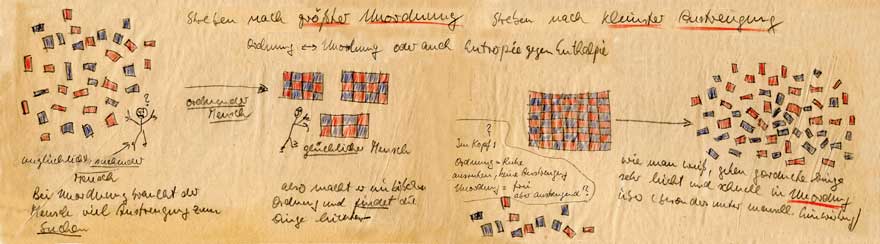 Streben nach größter Unordnung
Streben nach kleinster Anstrengung
Ordnung ↔ Unordnung oder auch Entropie gegen Enthalpie
?
unglücklicher, suchender
Mensch
Bei Unordnung braucht der
Mensch viel Anstrengung zum
Suchen
ordnender
Mensch
glücklicher Mensch
also macht er ein bißchen
Ordnung und findet die
Dinge leichter
?
Im Kopf:
Ordnung = Ruhe
ausruhen, keine Anstrengung
Unordnung = frei
aber anstrengend!?
wie man weiß, gehen geordnete Dinge
sehr leicht und schnell in Unordnung
über (besonders unter manuell. Einwirkung)